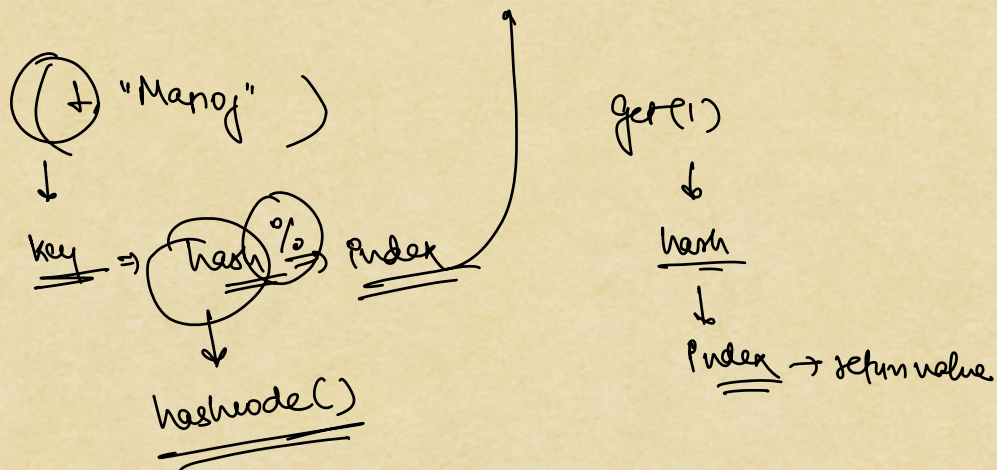 ( 1, "Manoj" )
key ⇒ hash % ⇒ index
hashcode()
get(1)
hash
index → return value